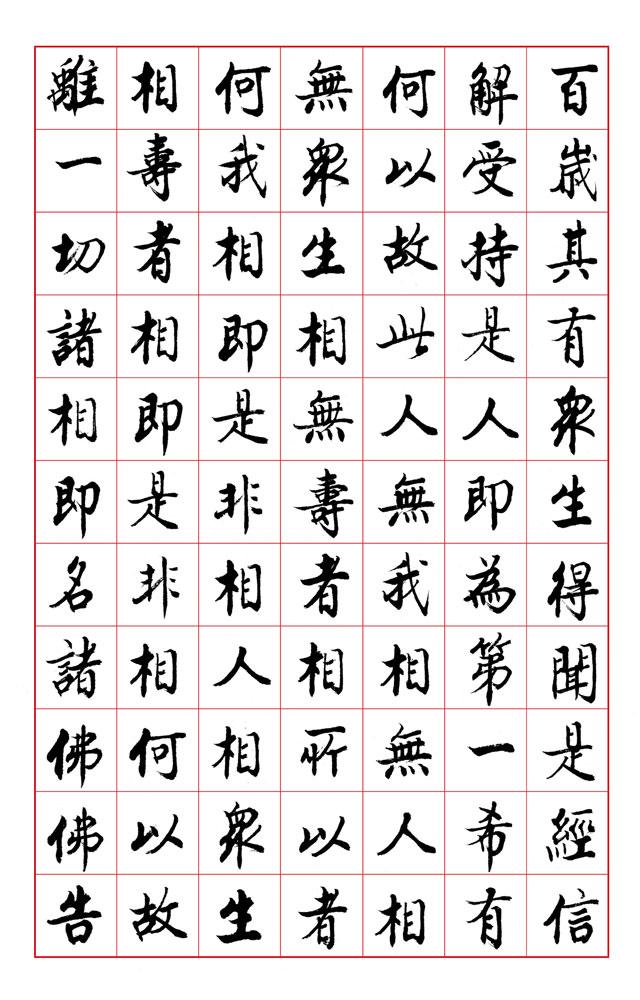 百歲其有衆生得聞是經信
解受持是人即為第一希有
何以故此人無我相無人相
無衆生相無壽者相所以者
何我相即是非相人相衆生
相壽者相即是非相何以故
離一切諸相即名諸佛佛告